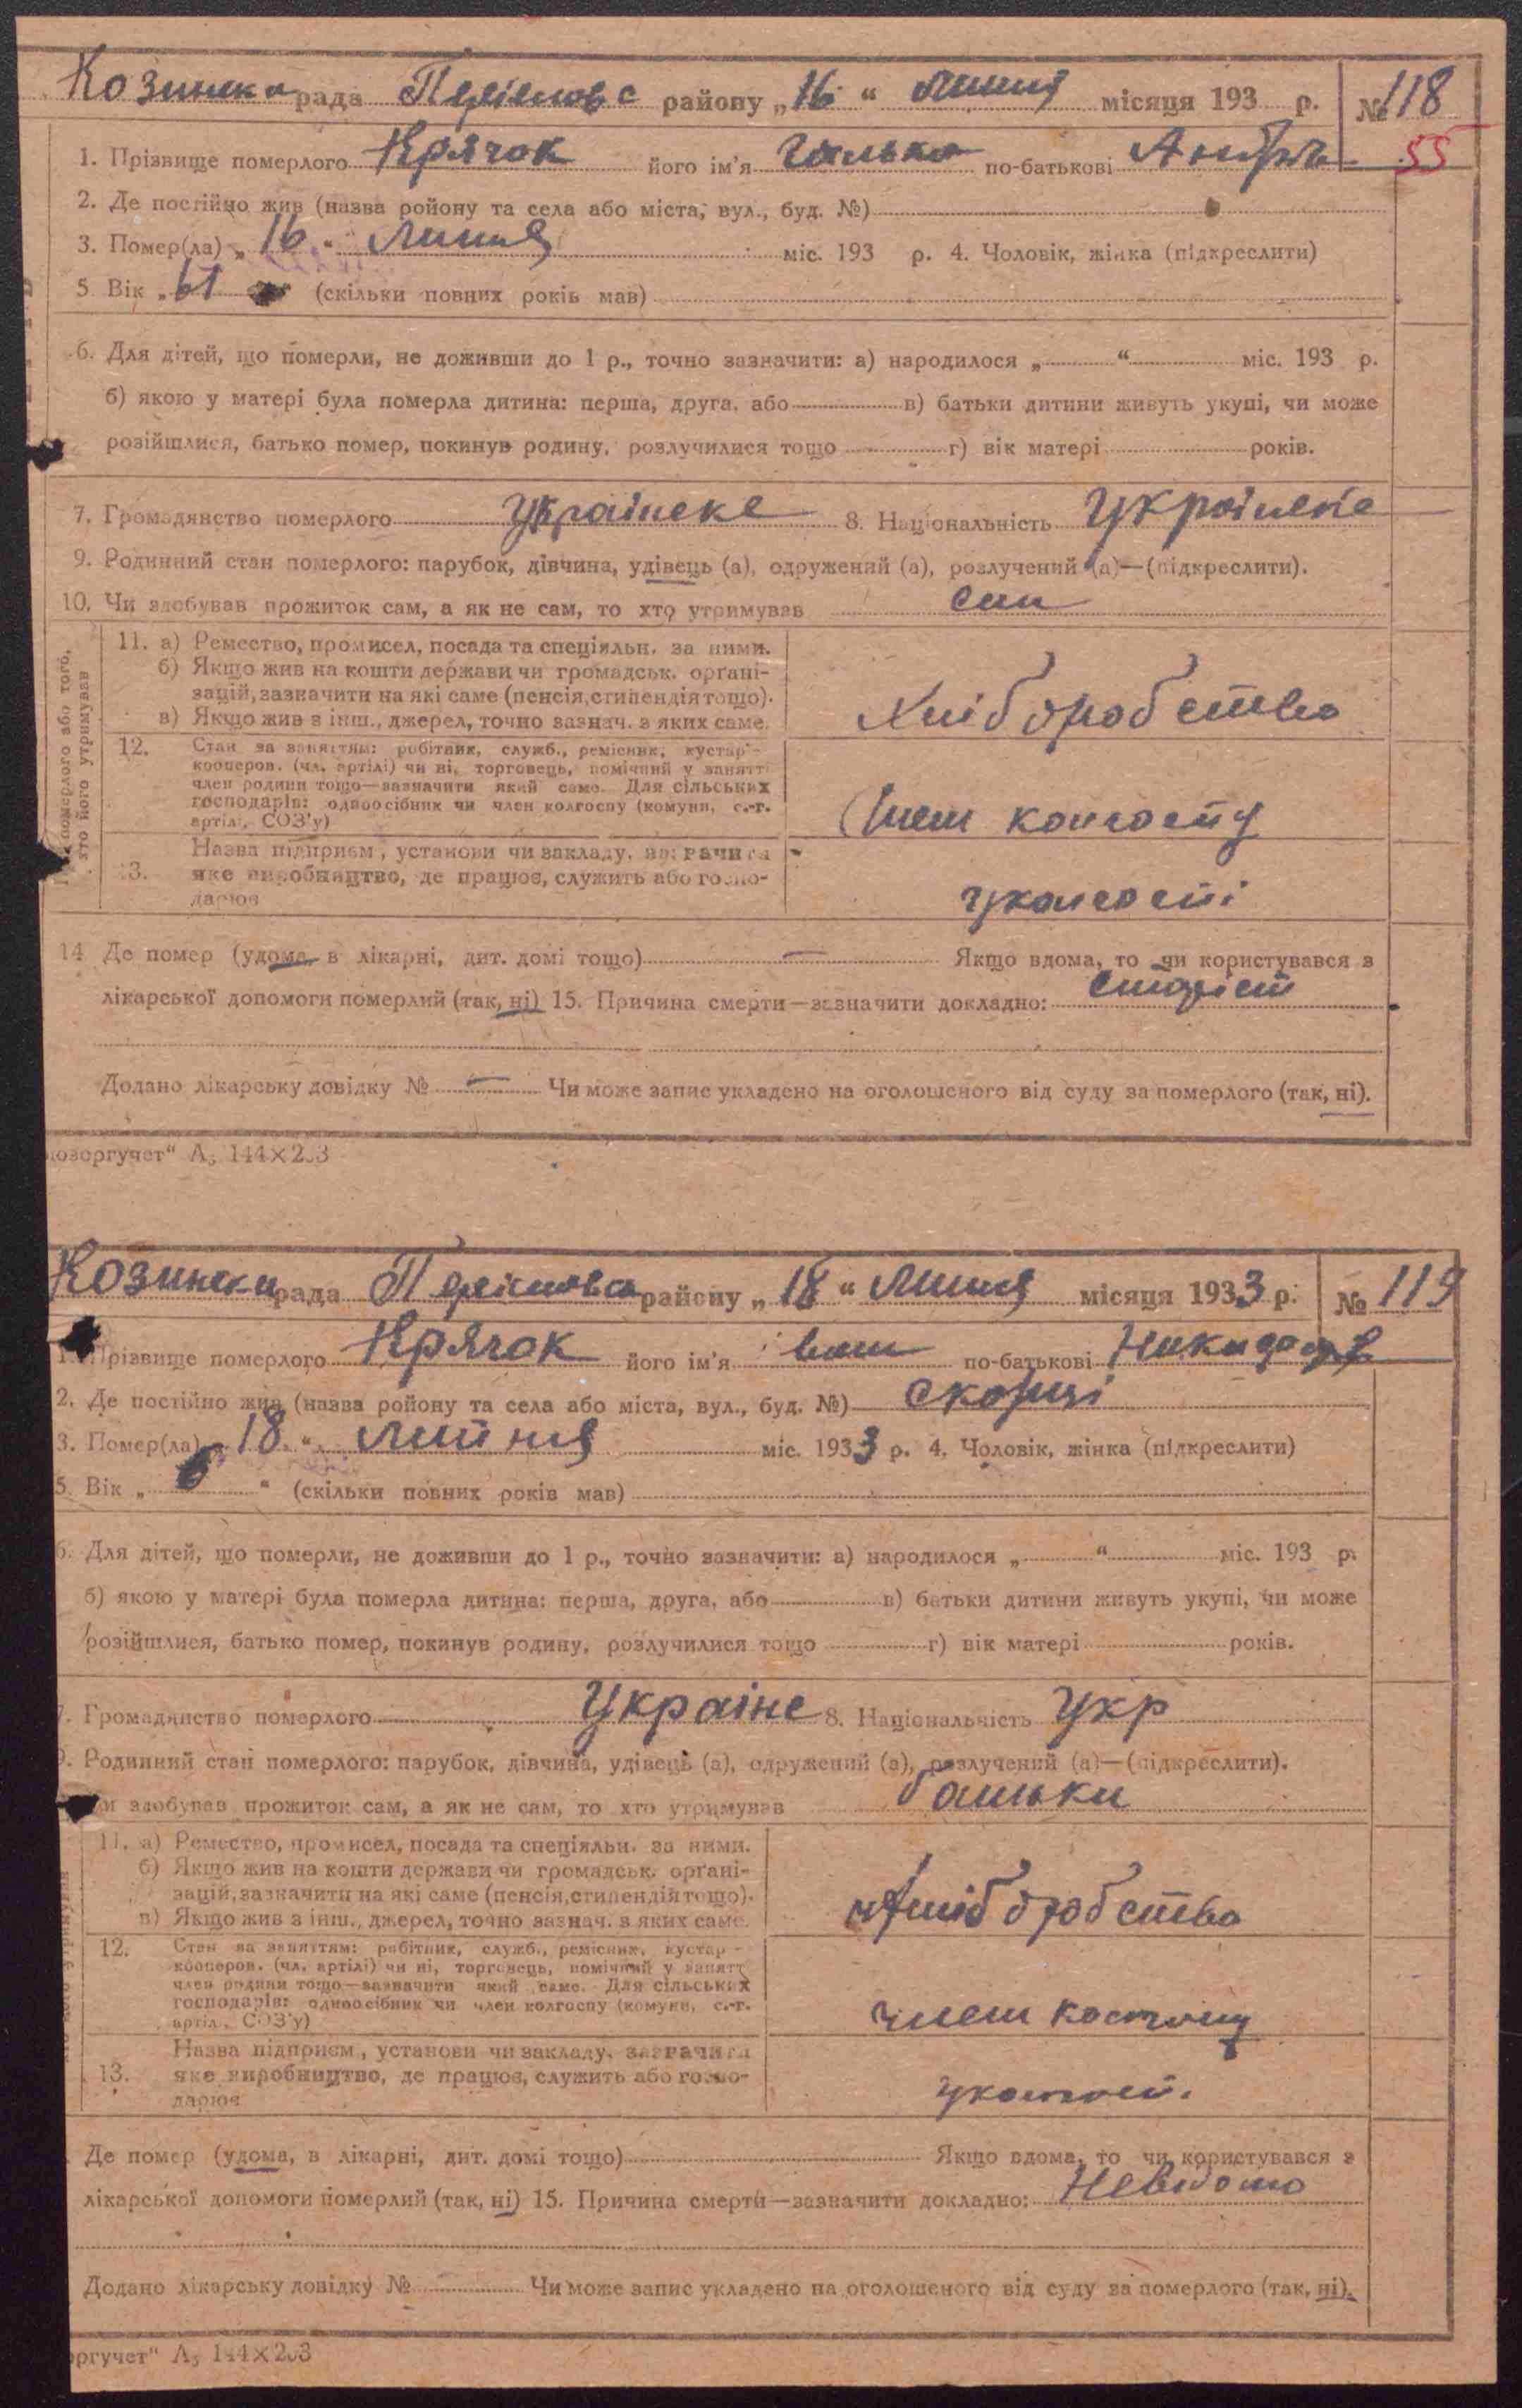 Козинська рада Переяславс району „16“ Липня місяця 193 р. № 118
55
1. Прізвище померлого Крячок його ім'я Галька по-батькові Андрів
2. Де постійно жив (назва ройону та села або міста, вул., буд. №)
3. Помер(ла) „16“ Липня міс. 193 р. 4. Чоловік, жінка (підкреслити)
5 Вік „61“ (скільки повних років мав)
6. Для дітей, що померли, не доживши до 1 р., точно зазначити: а) народилося „ “ міс. 193 р.
б) якою у матері була померла дитина: перша, друга, або в) батьки дитини живуть укупі, чи може
розійшлися, батько помер, покинув родину, розлучилися тощо г) вік матері років.
7. Громадянство померлого Українске 8. Національність Україненс
9. Родинний стан померлого: парубок, дівчина, удівець (а), одружений (а), розлучений (а)—(підкреслити).
10. Чи здобував прожиток сам, а як не сам, то хто утримував син
11. а) Ремество, промисел, посада та спеціяльн. за ними.
б) Якщо жив на кошти держави чи громадськ. орґані-
зацій, зазначити на які саме (пенсія, стипендія тощо).
в) Якщо жив з інш., джерел, точно зазнач. з яких саме.
Хліборобство
12. Стан за заняттям: робітник, служб., ремісник, кустар -
кооперов. (чл. артілі) чи ні, торговець, помічний у занятті
член родини тощо—зазначити який саме. Для сільських
господарів: одноосібник чи член колгоспу (комуни, с.-г.
артілі, СОЗ'у)
Член колгоспу
13. Назва підприєм, установи чи закладу, зазначити
яке виробництво, де працює, служить або госпо-
дарює
у колгоспі
14 Де помер (удома, в лікарні, дит. домі тощо) — Якщо вдома, то чи користувався з
лікарської допомоги померлий (так, ні) 15. Причина смерти—зазначити докладно: старіст
Додано лікарську довідку № — Чи може запис укладено на оголошеного від суду за померлого (так, ні).
озоргучет“ А₅ 144×203
Козинська рада Переяславська району „18“ Липня місяця 1933 р. № 119
1. Прізвище померлого Крячок його ім'я Іван по-батькові Никидоров
2. Де постійно жив (назва ройону та села або міста, вул., буд. №) Скопці
3. Помер(ла) „18“ Липня міс. 1933 р. 4. Чоловік, жінка (підкреслити)
5. Вік „6“ (скільки повних років мав)
6. Для дітей, що померли, не доживши до 1 р., точно зазначити: а) народилося „ “ міс. 193 р.
б) якою у матері була померла дитина: перша, друга, або в) батьки дитини живуть укупі, чи може
розійшлися, батько помер, покинув родину, розлучилися тощо г) вік матері років.
7. Громадянство померлого Українс 8. Національність Укр
9. Родинний стан померлого: парубок, дівчина, удівець (а), одружений (а), розлучений (а)—(підкреслити).
и здобував прожиток сам, а як не сам, то хто утримував батьки
11. а) Ремество, промисел, посада та спеціяльн. за ними.
б) Якщо жив на кошти держави чи громадськ. орґані-
зацій, зазначити на які саме (пенсія, стипендія тощо).
в) Якщо жив з інш., джерел, точно зазнач. з яких саме.
хліборобство
12. Стан за заняттям: робітник, служб., ремісник, кустар -
кооперов. (чл. артілі) чи ні, торговець, помічний у занятті
член родини тощо—зазначити який саме. Для сільських
господарів: одноосібник чи член колгоспу (комуни, с.-г.
артілі, СОЗ'у)
член
13. Назва підприєм, установи чи закладу, зазначити
яке виробництво, де працює, служить або госпо-
дарює
Де помер (удома, в лікарні, дит. домі тощо) Якщо вдома, то чи користувався з
лікарської допомоги померлий (так, ні) 15. Причина смерти—зазначити докладно: Невідомо
Додано лікарську довідку № — Чи може запис укладено на оголошеного від суду за померлого (так, ні).
оргучет“ А₅ 144×203